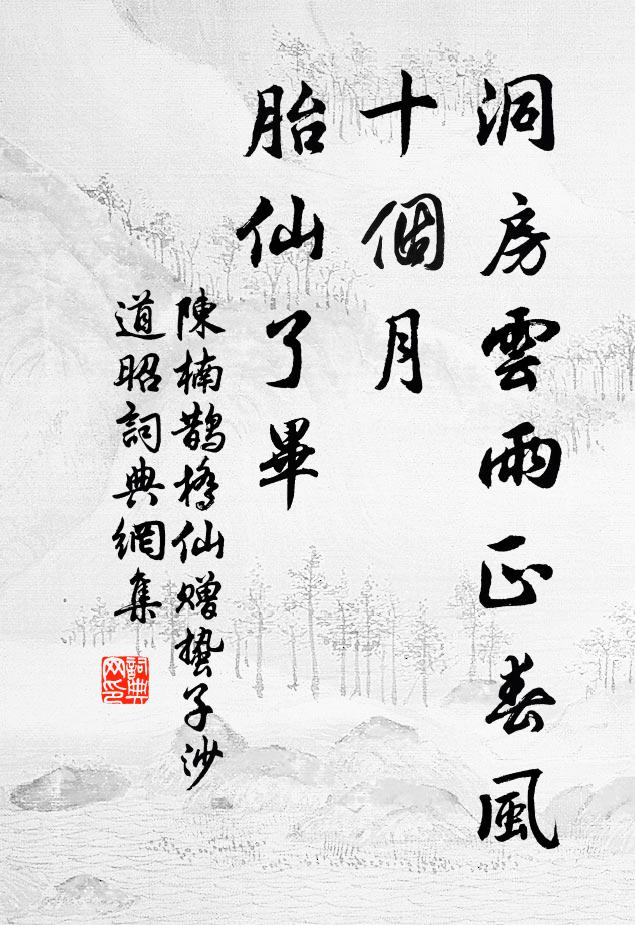 洞房雲雨正春風
十個月
胎仙了畢
陳楠鵲橋仙贈蟄子沙
道昭詞典網集
詞典網印